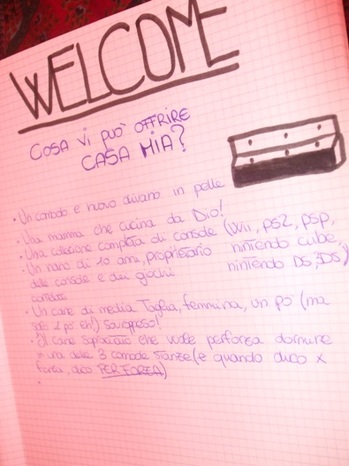 WELCOME
COSA VI PUÒ OFFRIRE
CASA MIA?
• Un comodo e nuovo divano in pelle
• Una mamma che cucina da Dio!
• Una collezione completa di console (Wii, PS2, PSP,
nintendo cube,
nintendo DS, 3DS)
• Un nano di 10 anni, proprietario
delle console e dei giochi
• Un cane di media taglia, femmina, un po' (ma
po' eh!)
• Il cane che vuole perforza dormire
in una delle 3 comode stanze (e quando dico x
forza, dico PER FORZA)